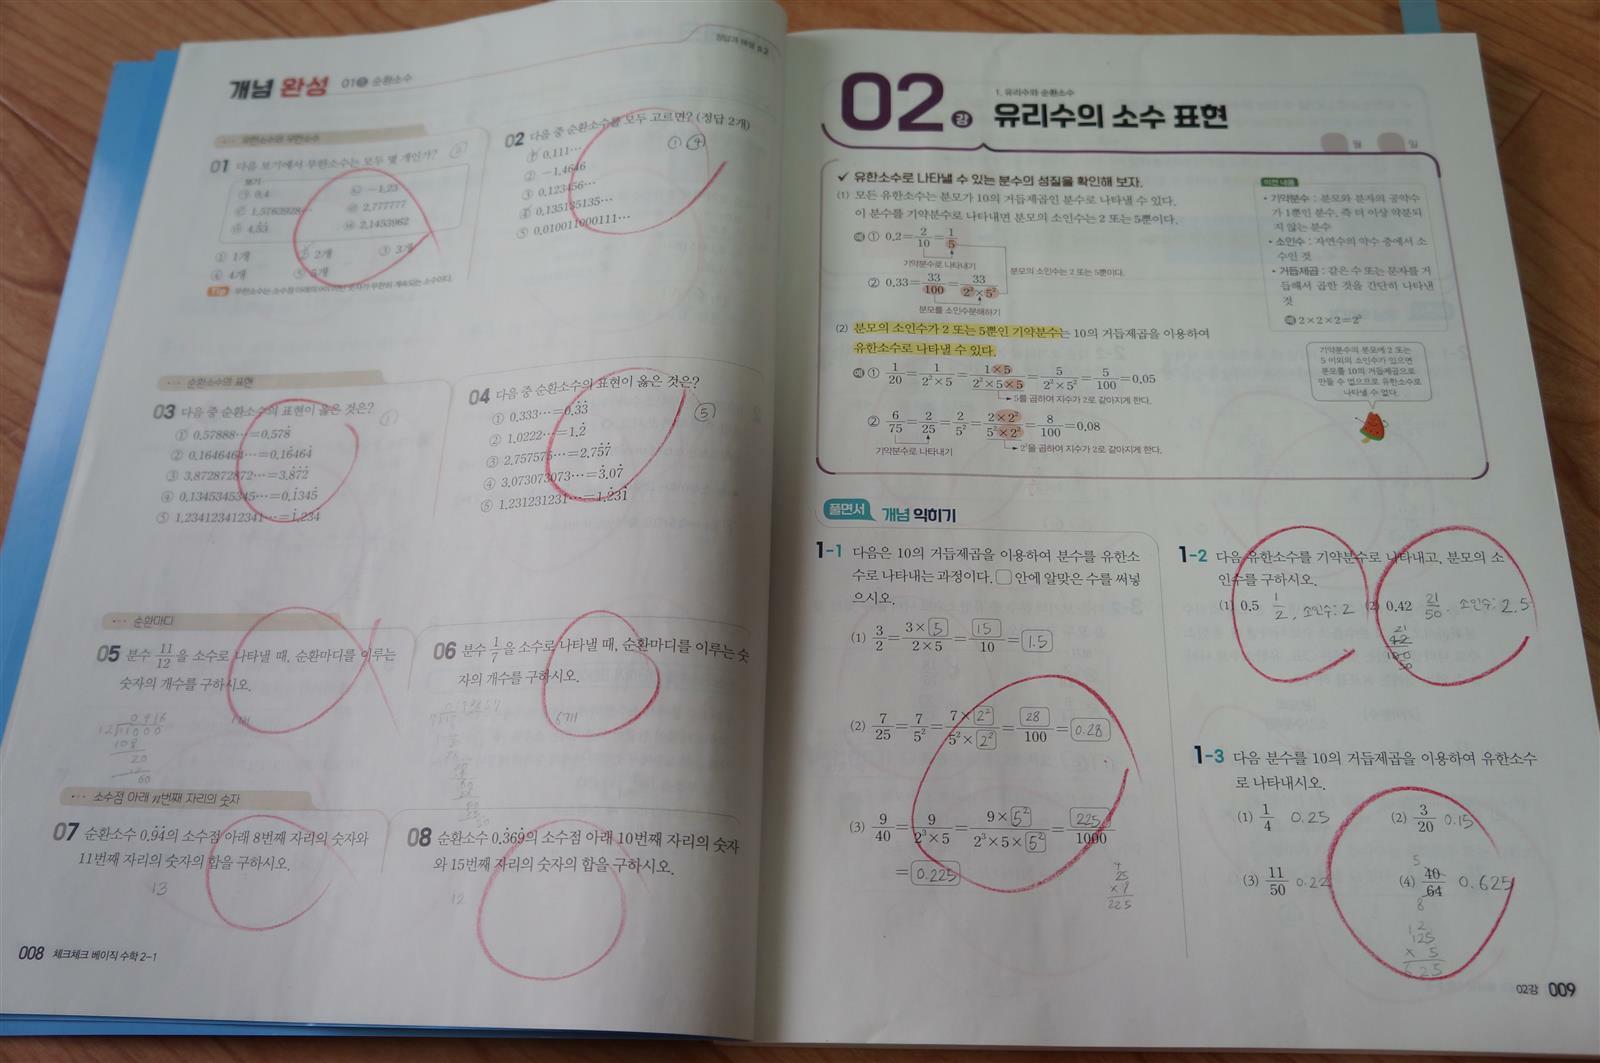 정답과 해설 p.2
개념 완성 01강 순환소수
유한소수와 무한소수
01 다음 보기에서 무한소수는 모두 몇 개인가?
보기
㉠ 0.4
㉡ -1.23
㉢ 1.5763928…
㉣ 2.777777
㉥ 2.1453962
① 1개 ② 2개 ③ 3개
④ 4개 ⑤ 5개
Tip 무한소수는 소수점 아래에 0이 아닌 숫자가 무한히 계속되는 소수이다.
02 다음 중 순환소수를 모두 고르면? (정답 2개)
① ④
① 0.111…
② -1.4646
③ 0.123456…
④ 0.135135135…
⑤ 0.010011000111…
순환소수의 표현
03 다음 중 순환소수의 표현이 옳은 것은?
①
① 0.57888…=0.578̇
② 0.1646464…=0.1̇646̇4̇
③ 3.872872872…=3.8̇7̇2̇
④ 0.1345345345…=0.1̇345̇
⑤ 1.234123412341…=1̇.234̇
04 다음 중 순환소수의 표현이 옳은 것은?
⑤
① 0.333…=0.3̇3̇
② 1.0222…=1.2̇
③ 2.757575…=2.75̇7̇
④ 3.073073073…=3̇.07̇
⑤ 1.231231231…=1.2̇31̇
순환마디
05 분수 11/12을 소수로 나타낼 때, 순환마디를 이루는
숫자의 개수를 구하시오.
1개
0.916
12)11000
108
20
12
80
06 분수 1/7을 소수로 나타낼 때, 순환마디를 이루는 숫
자의 개수를 구하시오.
6개
소수점 아래 n번째 자리의 숫자
07 순환소수 0.9̇4̇의 소수점 아래 8번째 자리의 숫자와
11번째 자리의 숫자의 합을 구하시오.
13
08 순환소수 0.3̇69̇의 소수점 아래 10번째 자리의 숫자
와 15번째 자리의 숫자의 합을 구하시오.
12
008 체크체크 베이직 수학 2-1
02강
1. 유리수와 순환소수
유리수의 소수 표현
월 일
✓ 유한소수로 나타낼 수 있는 분수의 성질을 확인해 보자.
(1) 모든 유한소수는 분모가 10의 거듭제곱인 분수로 나타낼 수 있다.
이 분수를 기약분수로 나타내면 분모의 소인수는 2 또는 5뿐이다.
예 ① 0.2=2/10=1/5
기약분수로 나타내기
분모의 소인수는 2 또는 5뿐이다.
② 0.33=33/100=33/(2²×5²)
분모를 소인수분해하기
(2) 분모의 소인수가 2 또는 5뿐인 기약분수는 10의 거듭제곱을 이용하여
유한소수로 나타낼 수 있다.
예 ① 1/20=1/(2²×5)=(1×5)/(2²×5×5)=5/(2²×5²)=5/100=0.05
5를 곱하여 지수가 2로 같아지게 한다.
② 6/75=2/25=2/5²=(2×2²)/(5²×2²)=8/100=0.08
기약분수로 나타내기
2²을 곱하여 지수가 2로 같아지게 한다.
이전 내용
• 기약분수 : 분모와 분자의 공약수
가 1뿐인 분수, 즉 더 이상 약분되
지 않는 분수
• 소인수 : 자연수의 약수 중에서 소
수인 것
• 거듭제곱 : 같은 수 또는 문자를 거
듭해서 곱한 것을 간단히 나타낸
것
예 2×2×2=2³
기약분수의 분모에 2 또는
5 이외의 소인수가 있으면
분모를 10의 거듭제곱으로
만들 수 없으므로 유한소수로
나타낼 수 없다.
풀면서 개념 익히기
1-1 다음은 10의 거듭제곱을 이용하여 분수를 유한소
수로 나타내는 과정이다. □ 안에 알맞은 수를 써넣
으시오.
(1) 3/2=(3×5)/(2×5)=15/10=1.5
(2) 7/25=7/5²=(7×2²)/(5²×2²)=28/100=0.28
(3) 9/40=9/(2³×5)=(9×5²)/(2³×5×5²)=225/1000
=0.225
4
25
×9
225
1-2 다음 유한소수를 기약분수로 나타내고, 분모의 소
인수를 구하시오.
(1) 0.5 1/2, 소인수: 2 (2) 0.42 21/50. 소인수: 2.5
21
42
100
50
1-3 다음 분수를 10의 거듭제곱을 이용하여 유한소수
로 나타내시오.
(1) 1/4 0.25 (2) 3/20 0.15
(3) 11/50 0.22 (4) 40/64 0.625
5
8
12
125
× 5
625
02강 009